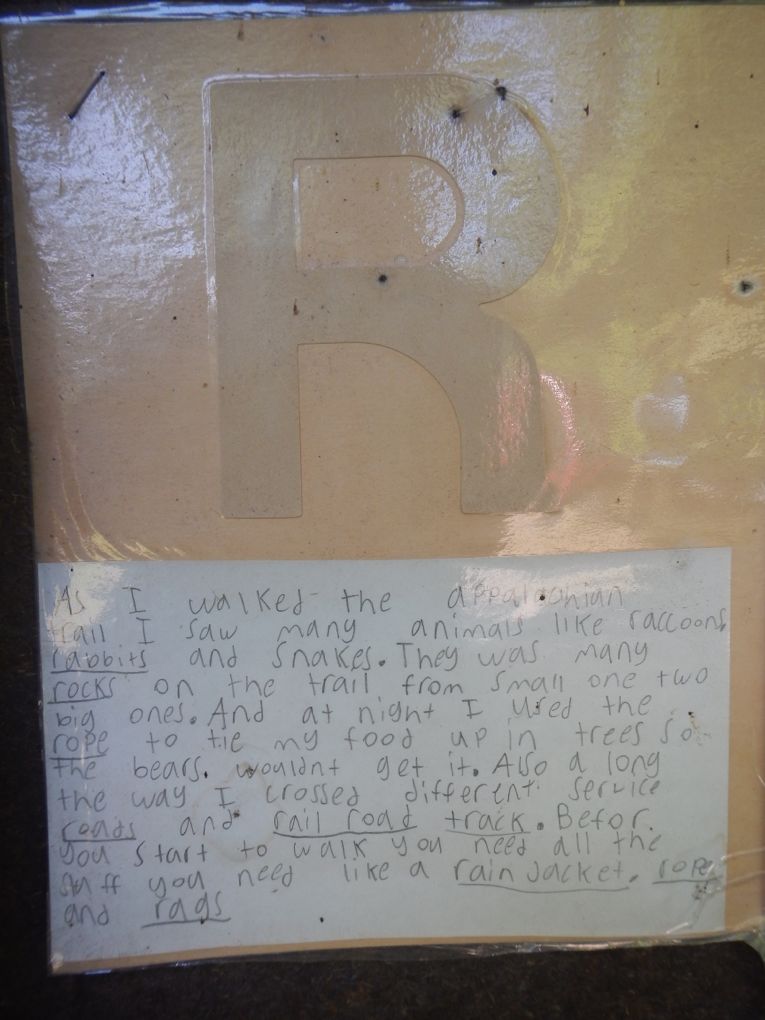 R
As I walked the appalachian
trail I saw many animals like raccoons
rabbits and snakes. They was many
rocks on the trail from small one two
big ones. And at night I used the
rope to tie my food up in trees so
the bears. wouldnt get it. Also a long
the way I crossed different service
roads and rail road track. Befor.
you start to walk you need all the
stuff you need like a rain jacket. rope
and rags